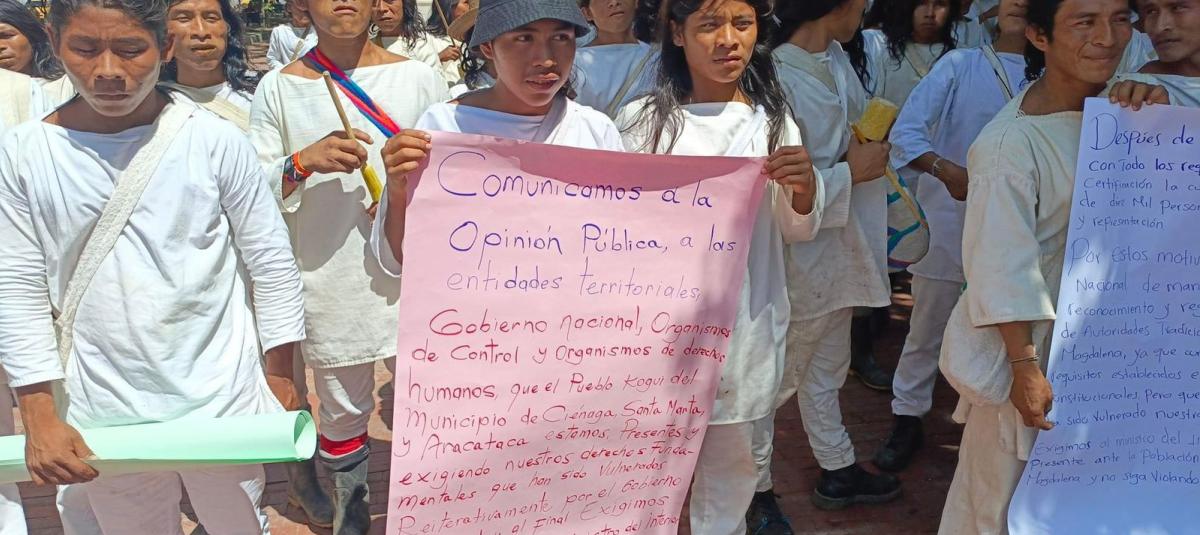 Comunicamos a la
Opinión Pública, a las
entidades territoriales,
Gobierno nacional, Organismos
de Control y Organismos de derechos
humanos, que el Pueblo Kogui del
Municipio de Cienaga, Santa Marta,
y Aracataca estamos, Presentes y
exigiendo nuestros derechos Funda-
mentales que han sido Vulnerados
Reiterativamente por el Gobierno
al Final Exigimos
del Interior
Después de
con Todo los req
Certificación la c
de diez Mil Person
y representación
Por Estos motiv
Nacional de man
reconocimiento y re
de Autoridades Tradici
Magdalena, ya que cu
requisitos establecidos e
constitucionales, Pero que
a sido Vulnerado nuestro
Exigimos al ministro del I
Presente ante la Población
Magdalena y no siga Violando